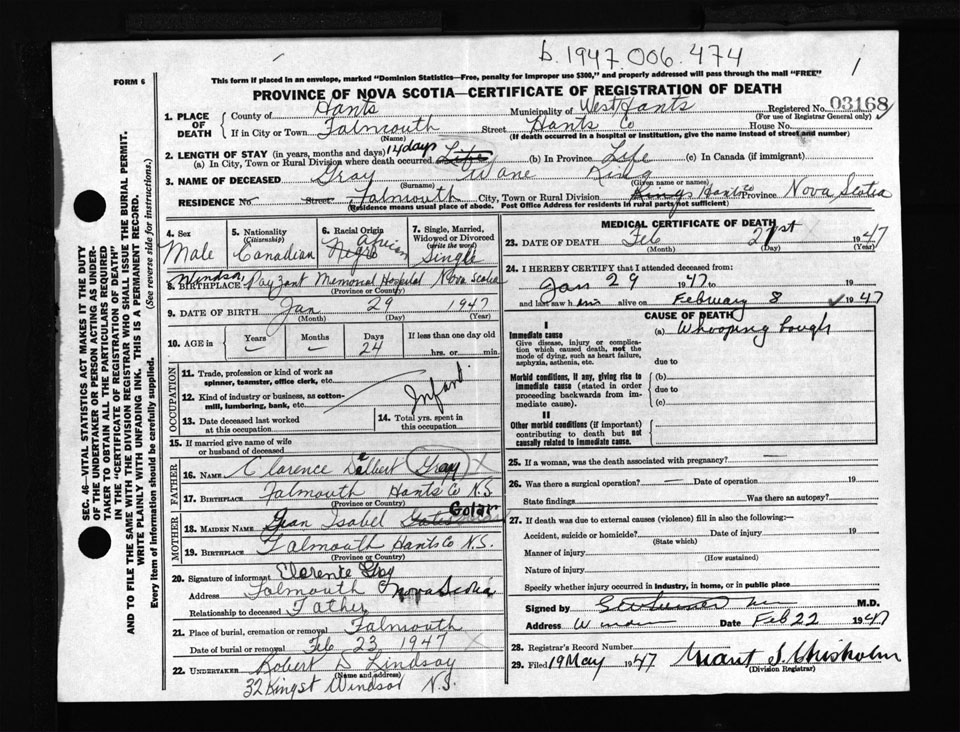 b. 1947.006.474
1
FORM 6
This form if placed in an envelope, marked "Dominion Statistics—Free, penalty for improper use $300," and properly addressed will pass through the mail "FREE"
PROVINCE OF NOVA SCOTIA—CERTIFICATE OF REGISTRATION OF DEATH
SEC. 46—VITAL STATISTICS ACT MAKES IT THE DUTY
OF THE UNDERTAKER OR PERSON ACTING AS UNDER-
TAKER TO OBTAIN ALL THE PARTICULARS REQUIRED
IN THE "CERTIFICATE OF REGISTRATION OF DEATH"
AND TO FILE THE SAME WITH THE DIVISION REGISTRAR WHO SHALL ISSUE THE BURIAL PERMIT.
WRITE PLAINLY WITH UNFADING INK. THIS IS A PERMANENT RECORD.
Every item of information should be carefully supplied. (See reverse side for instructions.)
1. PLACE OF DEATH
County of Hants Municipality of West Hants Registered No. 03168
(For use of Registrar General only)
If in City or Town Falmouth Street Hants Co House No.
(Name) (If death occurred in a hospital or institution, give the name instead of street and number)
2. LENGTH OF STAY (in years, months and days) 14 days
(a) In City, Town or Rural Division where death occurred Life (b) In Province Life (c) In Canada (if immigrant)
3. NAME OF DECEASED Gray Wane King
(Surname) (Given name or names)
RESIDENCE No Street Falmouth City, Town or Rural Division Kings Hants Co Province Nova Scotia
(Residence means usual place of abode. Post Office Address for residents in rural parts not sufficient)
4. Sex Male
5. Nationality (Citizenship) Canadian
6. Racial Origin African Negro
7. Single, Married, Widowed or Divorced (write the word) Single
8. BIRTHPLACE Windsor, Payzant Memorial Hospital Nova Scotia
(Province or Country)
9. DATE OF BIRTH Jan 29 1947
(Month) (Day) (Year)
10. AGE in Years – Months – Days 24 If less than one day old hrs. or min.
OCCUPATION
11. Trade, profession or kind of work as spinner, teamster, office clerk, etc.
Infant.
12. Kind of industry or business, as cotton-mill, lumbering, bank, etc.
13. Date deceased last worked at this occupation
14. Total yrs. spent in this occupation
15. If married give name of wife or husband of deceased
FATHER
16. NAME Clarence Delbert Gray X
17. BIRTHPLACE Falmouth Hants Co N.S.
(Province or Country)
MOTHER
18. MAIDEN NAME Jean Isabel Gates Golar
19. BIRTHPLACE Falmouth Hants Co N.S.
(Province or Country)
20. Signature of informant Clarence Gray
Address Falmouth Nova Scotia
Relationship to deceased Father
21. Place of burial, cremation or removal Falmouth
Date of burial or removal Feb 23 1947 X
22. UNDERTAKER Robert D Lindsay
(Name and address)
32 King St Windsor N.S.
MEDICAL CERTIFICATE OF DEATH
23. DATE OF DEATH Feb 21st 1947
(Month) (Day) (Year)
24. I HEREBY CERTIFY that I attended deceased from:
Jan 29 1947 to 19
and last saw him alive on February 8 1947
CAUSE OF DEATH
I
Immediate cause (a) Whooping Cough
Give disease, injury or complication which caused death, not the mode of dying, such as heart failure, asphyxia, asthenia, etc.
due to
Morbid conditions, if any, giving rise to immediate cause (stated in order proceeding backwards from immediate cause).
(b)
due to
(c)
II
Other morbid conditions (if important) contributing to death but not causally related to immediate cause.
25. If a woman, was the death associated with pregnancy? —
26. Was there a surgical operation? — Date of operation 19
State findings Was there an autopsy?
27. If death was due to external causes (violence) fill in also the following:—
Accident, suicide or homicide? Date of injury 19
(State which)
Manner of injury
(How sustained)
Nature of injury
Specify whether injury occurred in industry, in home, or in public place
Signed by M.D.
Address Windsor Date Feb 22 1947
28. Registrar's Record Number
29. Filed 19 May 1947 Grant S. Chisholm
(Division Registrar)